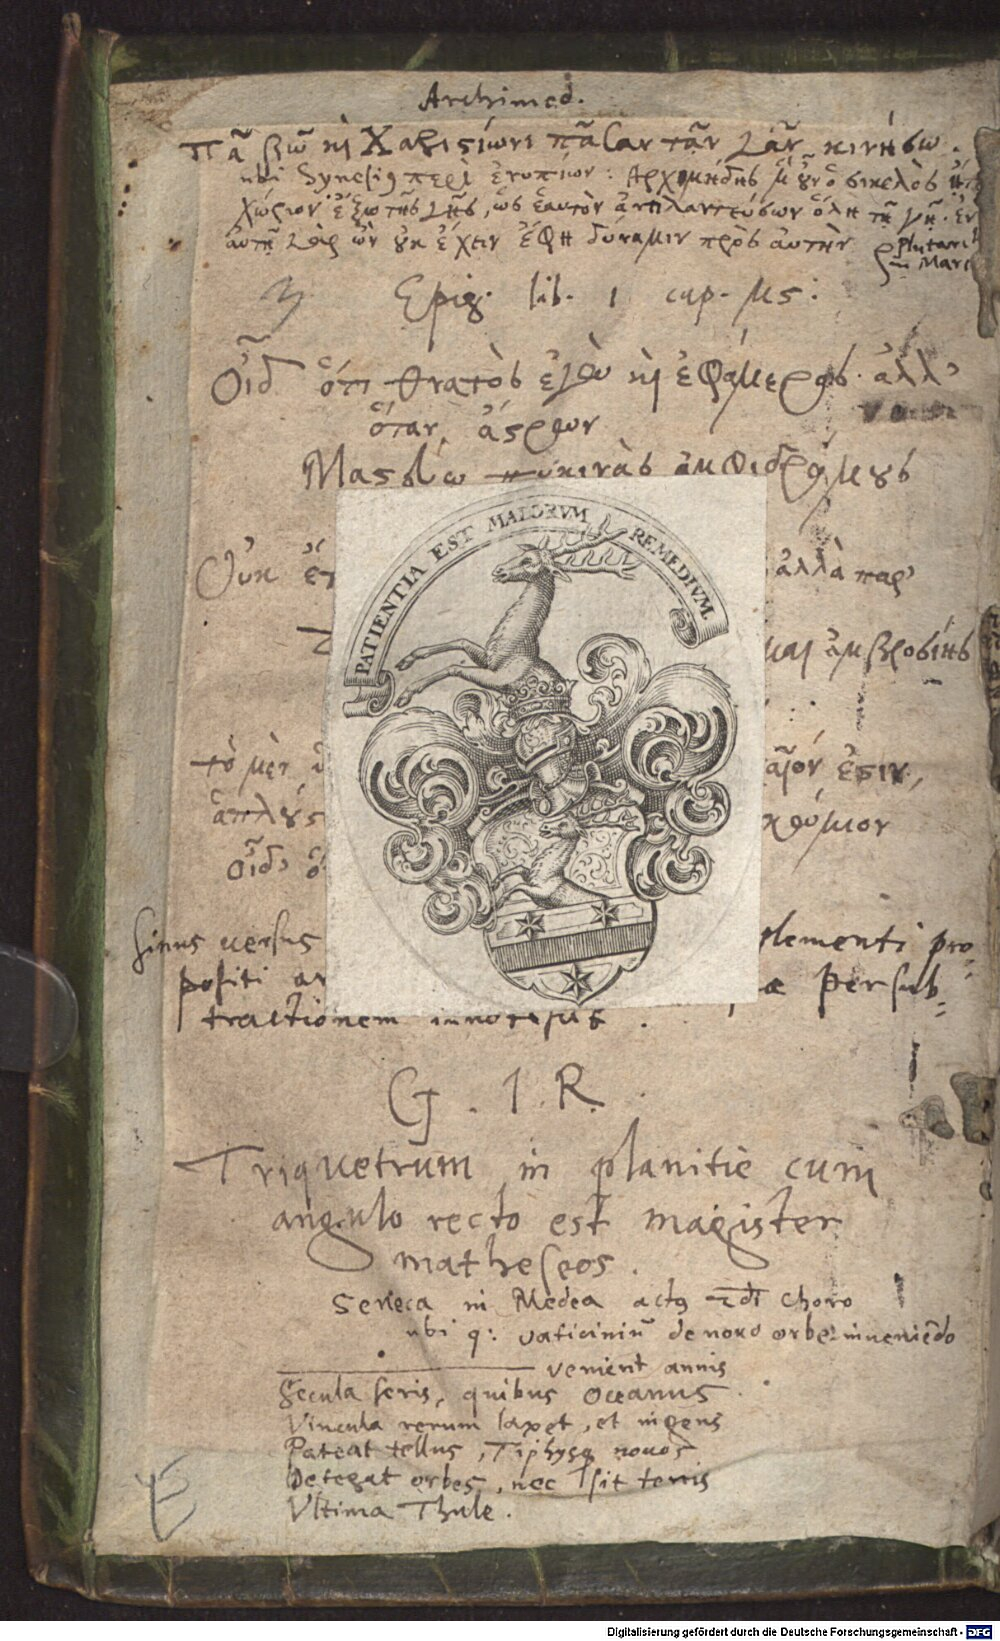 Archimed.
πᾶ βῶ κὶ Χαριςίωνι πᾶσαν τὰν γᾶν κινήσω.
ubi Synesiꝰ περὶ ἐνυπνίων: Ἀρχιμήδης μ ȣ̓ν ὁ σικελὸς
χωρίον ἔξω τῆς γῆς, ὡς ἑαυτὸν ὅλῃ τῇ γῇ. ἐν
αὐτῇ γὰρ ὢν ȣ̓κ ἔχειν ἔφη δύναμιν πρὸς αὐτὴν
Plutarch
in Marc
Epig. lib. 1 cap. μς:
Οἶδ' ὅτι θνατὸς ἐγὼ κὶ ἐφάμερος. ἀλλ'
ὅταν ἄςρων
Μαςεύω πυκινὰς ἀμφιδρόμȣς
Οὐκ ἔτ ἀλλὰ παρ'
καὶ ἀμβροσίης
τὸ μὲν ἐςιν,
ἁπλȣς
οἶδ' ὅ
Sinus versus plementi pro-
positi ar æ per sub-
tractionem innotescit.
G. I. R.
Triquetrum in planitie cum
angulo recto est magister
matheseos.
Seneca in Medea actꝰ 2di choro
ubi q: vaticiniū de novo orbe inveniēdo
venient annis
Secula seris, quibus Oceanus
Vincula rerum laxet, et ingens
Pateat tellus, Tiphysq novos
Detegat orbes, nec sit terris
Ultima Thule.
PATIENTIA EST MALORVM REMEDIVM.
Digitalisierung gefördert durch die Deutsche Forschungsgemeinschaft - DFG